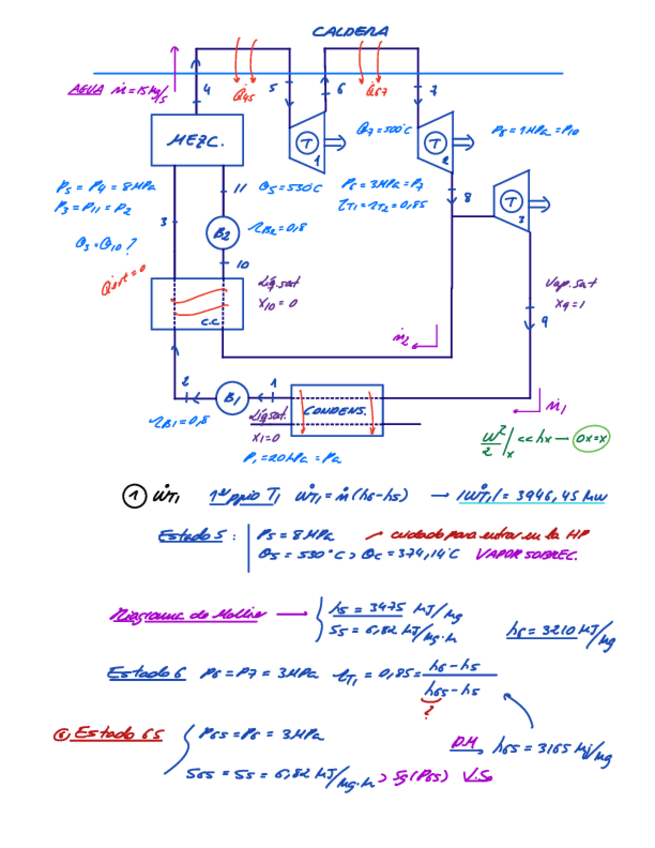 CALDERA
AGUA ṁ = 15 kg/s
4
Q̇45
5
6
Q̇67
7
MEZC.
T
1
θ7 = 500°C
T
2
P8 = 1 MPa = P10
P5 = P4 = 8 MPa
P3 = P11 = P2
11
θ5 = 530°C
P6 = 3 MPa = P7
ηT1 = ηT2 = 0,85
8
T
3
3
B2
ηB2 = 0,8
θ3 = θ10?
10
Q̇ext = 0
Líq. sat
X10 = 0
C.C.
Vap. sat
X9 = 1
9
ṁ2
2
B1
1
ηB1 = 0,8
Líq sat.
X1 = 0
CONDENS.
ṁ1
P1 = 20 kPa = P9
w²/2 |x << hx → θx = x
① ẆT1 1er ppio T1 ẆT1 = ṁ(h6 - h5) → |ẆT1| = 3946,45 kW
Estado 5 : P5 = 8 MPa → cuidado para entrar en la HP
θ5 = 530°C > θc = 374,14°C VAPOR SOBREC.
Diagrama de Mollier → h5 = 3475 kJ/kg
S5 = 6,82 kJ/kg·K h6 = 3210 kJ/kg
Estado 6 P6 = P7 = 3 MPa ηT1 = 0,85 = h6 - h5 / h6s - h5
?
Estado 6S P6s = P6 = 3 MPa
D.M h6s = 3165 kJ/kg
S6s = S5 = 6,82 kJ/kg·K > Sg(P6s) V.S.